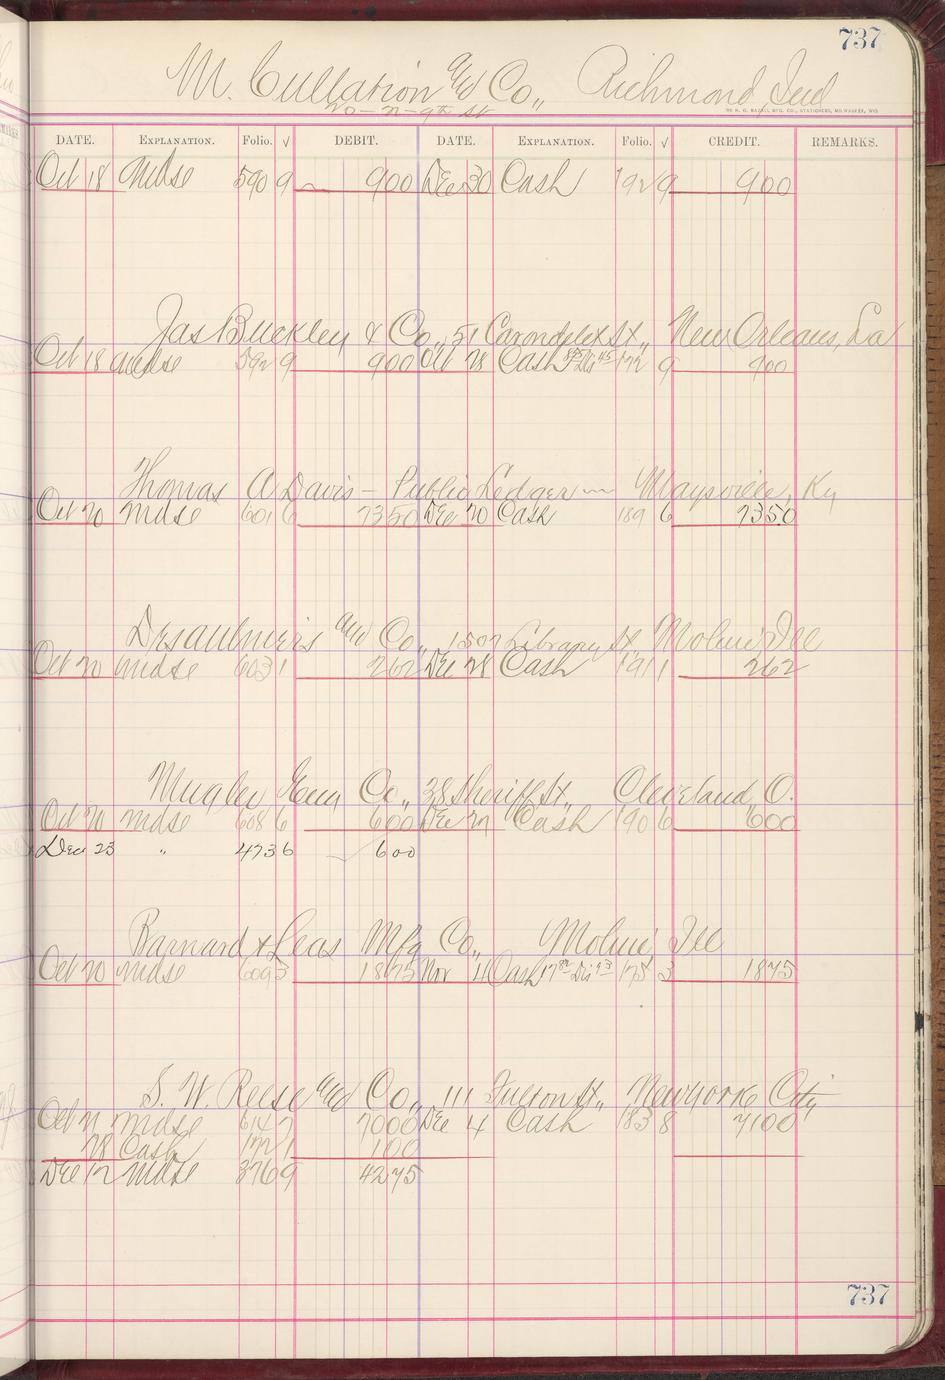 737
M. Cullation and Co., Richmond, Ind
20 - N - 9th St
THE H. G. RAZALL MFG. CO., STATIONERS, MILWAUKEE, WIS.
DATE. EXPLANATION. Folio. √ DEBIT. DATE. EXPLANATION. Folio. √ CREDIT. REMARKS.
Oct 18 Mdse 590 9 900 Dec 30 Cash 192 9 900
Jas Buckley & Co., 51 Carondelet St., New Orleans, La
Oct 18 Mdse 592 9 900 Oct 28 Cash 855 Dis 45 172 9 900
Thomas A Davis - Public Ledger - Maysville, Ky
Oct 20 Mdse 601 6 7350 Dec 20 Cash 189 6 7350
Desaulniers and Co., 1507 Library St, Moline, Ill
Oct 20 Mdse 603 1 262 Dec 28 Cash 191 1 262
Mugler Eng Co., 38 Sheriff St., Cleveland, O.
Oct 20 Mdse 608 6 600 Dec 22 Cash 190 6 600
Dec 23 " 473 6 √ 600
Barnard & Leas Mfg Co., Moline Ill
Oct 20 Mdse 609 3 1875 Nov 11 Cash Dis 175 3 1875
S. W. Reese and Co., 111 Fulton St., New York City
Oct 21 Mdse 614 7 7000 Dec 4 Cash 183 8 7100
28 Cash 172 1 100
Dec 12 Mdse 376 9 4275
737